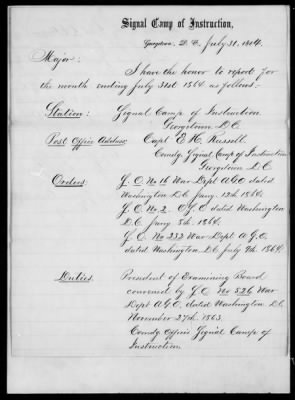 Signal Camp of Instruction,
Georgetown, D. C. July 31, 1864.
Major:
I have the honor to report for
the month ending July 31st 1864 as follows:
Station: Signal Camp of Instruction
Georgetown D.C.
Post Office Address: Capt E. H. Russell
Comdg Signal Camp of Instruction
Georgetown D.C.
Orders: S.O. No 16 War Dept A.G.O. dated
Washington D.C. Jany. 12th 1864.
S.O. No 2. O.S.O. dated Washington
D.C. Jany. 5th 1864.
S.O. No 232 War Dept A.G.O.
dated Washington D.C. July 9th 1864.
Duties. President of Examining Board
convened by S.O. No 526 War
Dept A.G.O. dated Washington D.C.
November 27th 1863.
Comdg Officer Signal Camp of
Instruction